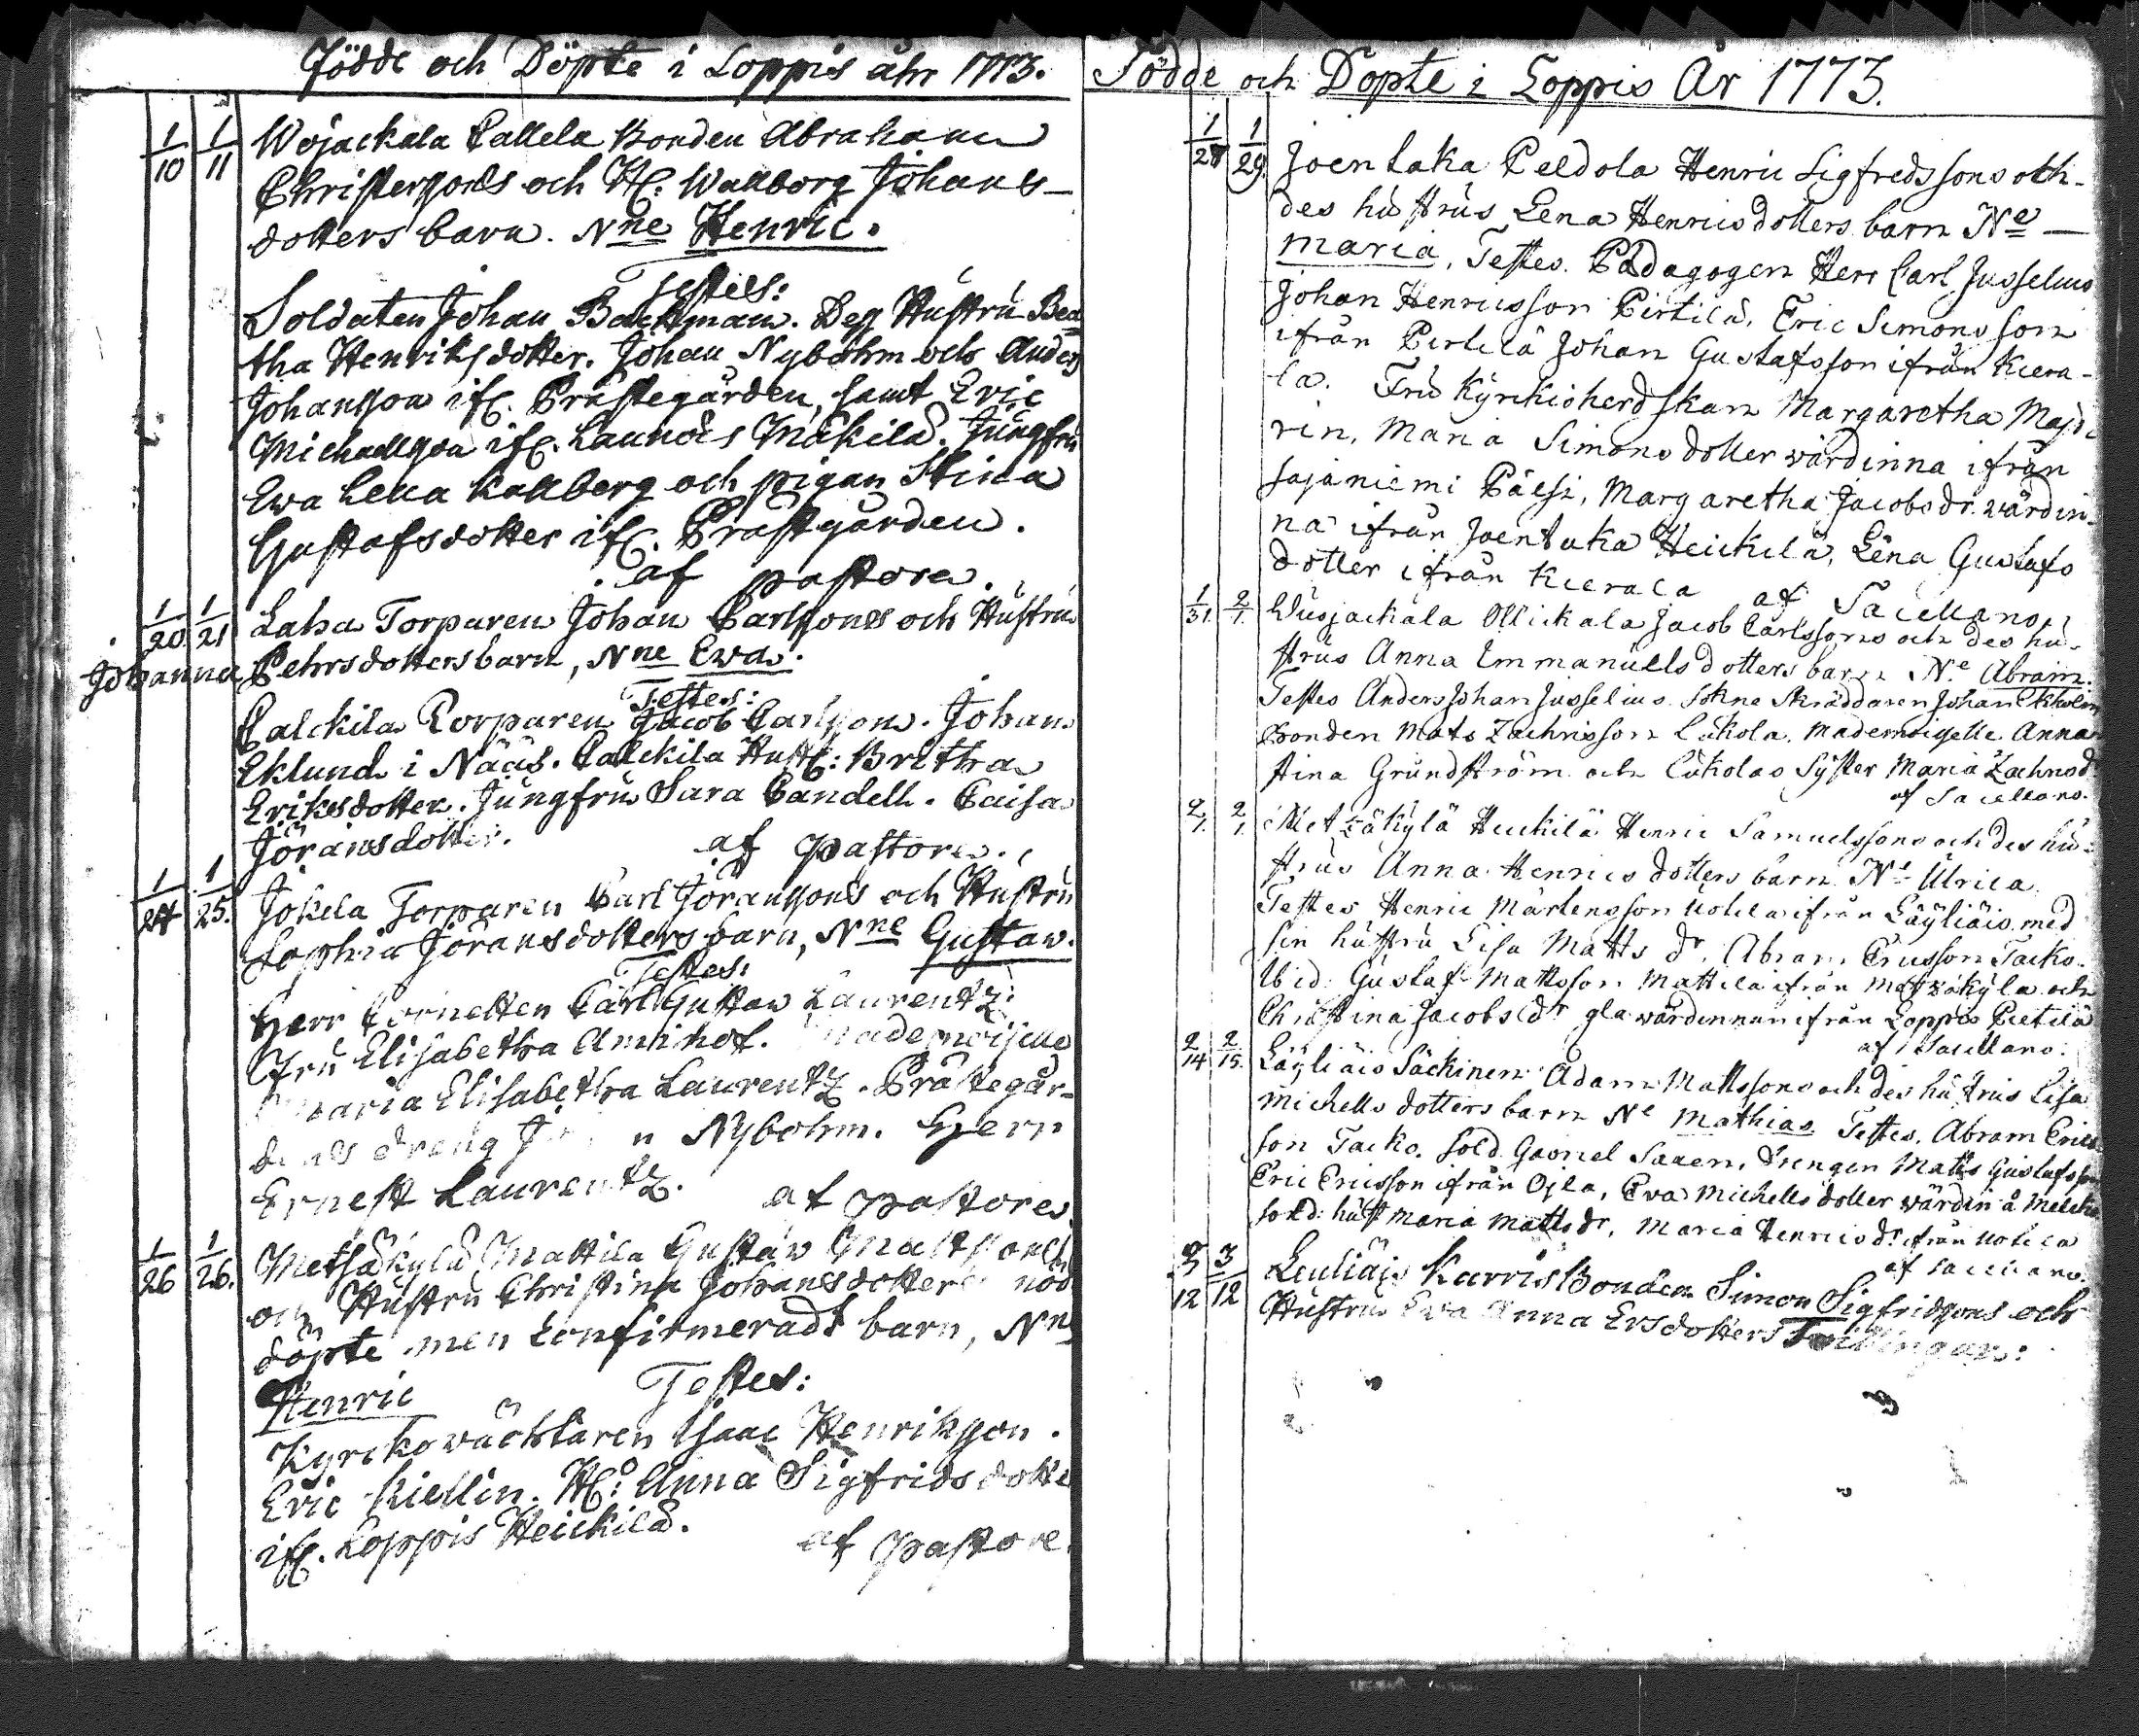 Födde och Döpte i Loppis åhr 1773.
1/10 1/11 Wojackala Pallela Bonden Abraham
Christersons och H. Wallborg Johans-
dotters barn. Nne Henric.
Testes:
Soldaten Johan Backman. Dess Hustru Bea
tha Henriksdotter. Johan Nybohm och Anders
Johansson ifr. Prästegården, samt Eric
Michaellsson ifr. Launois Mäkilä. Jungfru
Ewa Lena Kallberg och pigan Stina
Gustafsdotter ifr. Prästgården.
af pastore.
1/20 1/21 Laha Torparen Johan Carlssons och Hustru
Johanna Pehrsdotters barn, Nne Ewa.
Testes:
Palckila Torparen Jacob Carlsson. Johan
Eklund i Nääs. Palckila Hustr: Britha
Eriksdotter. Jungfru Sara Pandell. Caisa
Jöransdotter. af pastore.
1/24 1/25. Jokela Torparen Carl Jöranssons och Hustru
Sophia Jöransdotters barn, Nne Gustaw.
Testes:
Herr Cornetten Carl Gustav Laurentz.
Fru Elisabetha Aminhof. Mademoiselle
Maria Elisabetha Laurentz. Prästegår-
dens dreng Nybohm. Herr
Ernest Laurentz. af pastore.
1/26 1/26. Metsäkylä Mattila Gustav Mattssons
och Hustru Christina Johansdotters nöd
döpte men Confirmeradt barn, Nne
Henric Testes:
Kyrckowächtaren Isaac Henriksson.
Eric Kiellin. H: Anna Sigfridsdotte
ifr. Loppis Heickilä. af pastore.
Födde och Döpte i Loppis År 1773.
1/28 1/29. Joentaka Peldola Henric Sigfredssons och
des hustrus Lena Henricsdotters barn Ne
Maria, Testes. Pädagogen Herr Carl Jusselius
Johan Henricsson Pirtilä, Eric Simonsson
ifrån Pertilä Johan Gustafsson ifrån Kiera-
la. Fru Kyrkioherdskan Margaretha Maj
rin, Maria Simonsdotter wärdinna ifrån
Sajaniemi Pälsi, Margaretha Jacobsdr. wärdin-
na ifrån Joentaka Heickilä, Lena Gustafs
dotter ifrån Kierala af Sacellano.
1/31. 2/1. Wusjackala Ollickala Jacob Carlssons och des hu-
strus Anna Emmanuellsdotters barn Ne. Abram.
Testes Anders Johan Jusselius. Sokne Skräddaren Johan Ekholm
Bonden Mats Zachrisson Cukola. Mademoiselle Anna
Stina Grundström och Cukolas Syster Maria Zachrisd
af Sacellano.
2/1. 2/1. Metzäkylä Heickilä Henric Samuelssons och des hu-
strus Anna Henricsdotters barn Ne Ulrica.
Testes Henric Mårtensson Uotila ifrån Läyliäis med
sin hustru Lisa Matts dr. Abram Ericsson Tacko.
Ibid: Gustaf Mattsson Mattila ifrån Metzäkylä och
Christina Jacobsdr gla wärdinnan ifrån Loppis Pietilä
af Sacellano.
2/14 2/15. Läyliäis Säckinen Adam Mattssons och des hustrus Lisa
Michellsdotters barn Ne Mathias. Testes. Abram Erics
son Tacko. Sold. Gabriel Saxen, Drengen Matts Gustafsson
Eric Ericsson ifrån Ojla, Eva Michellsdotter wärdin å
sold: hust Maria Mattsdr, Maria Henricsdr ifrån Uotila
af Sacellano.
3/12 3/12 Leuliäis Karris Bonden Simon Sigfridssons och
Hustru Ewa Anna Ersdotters Twillingar: